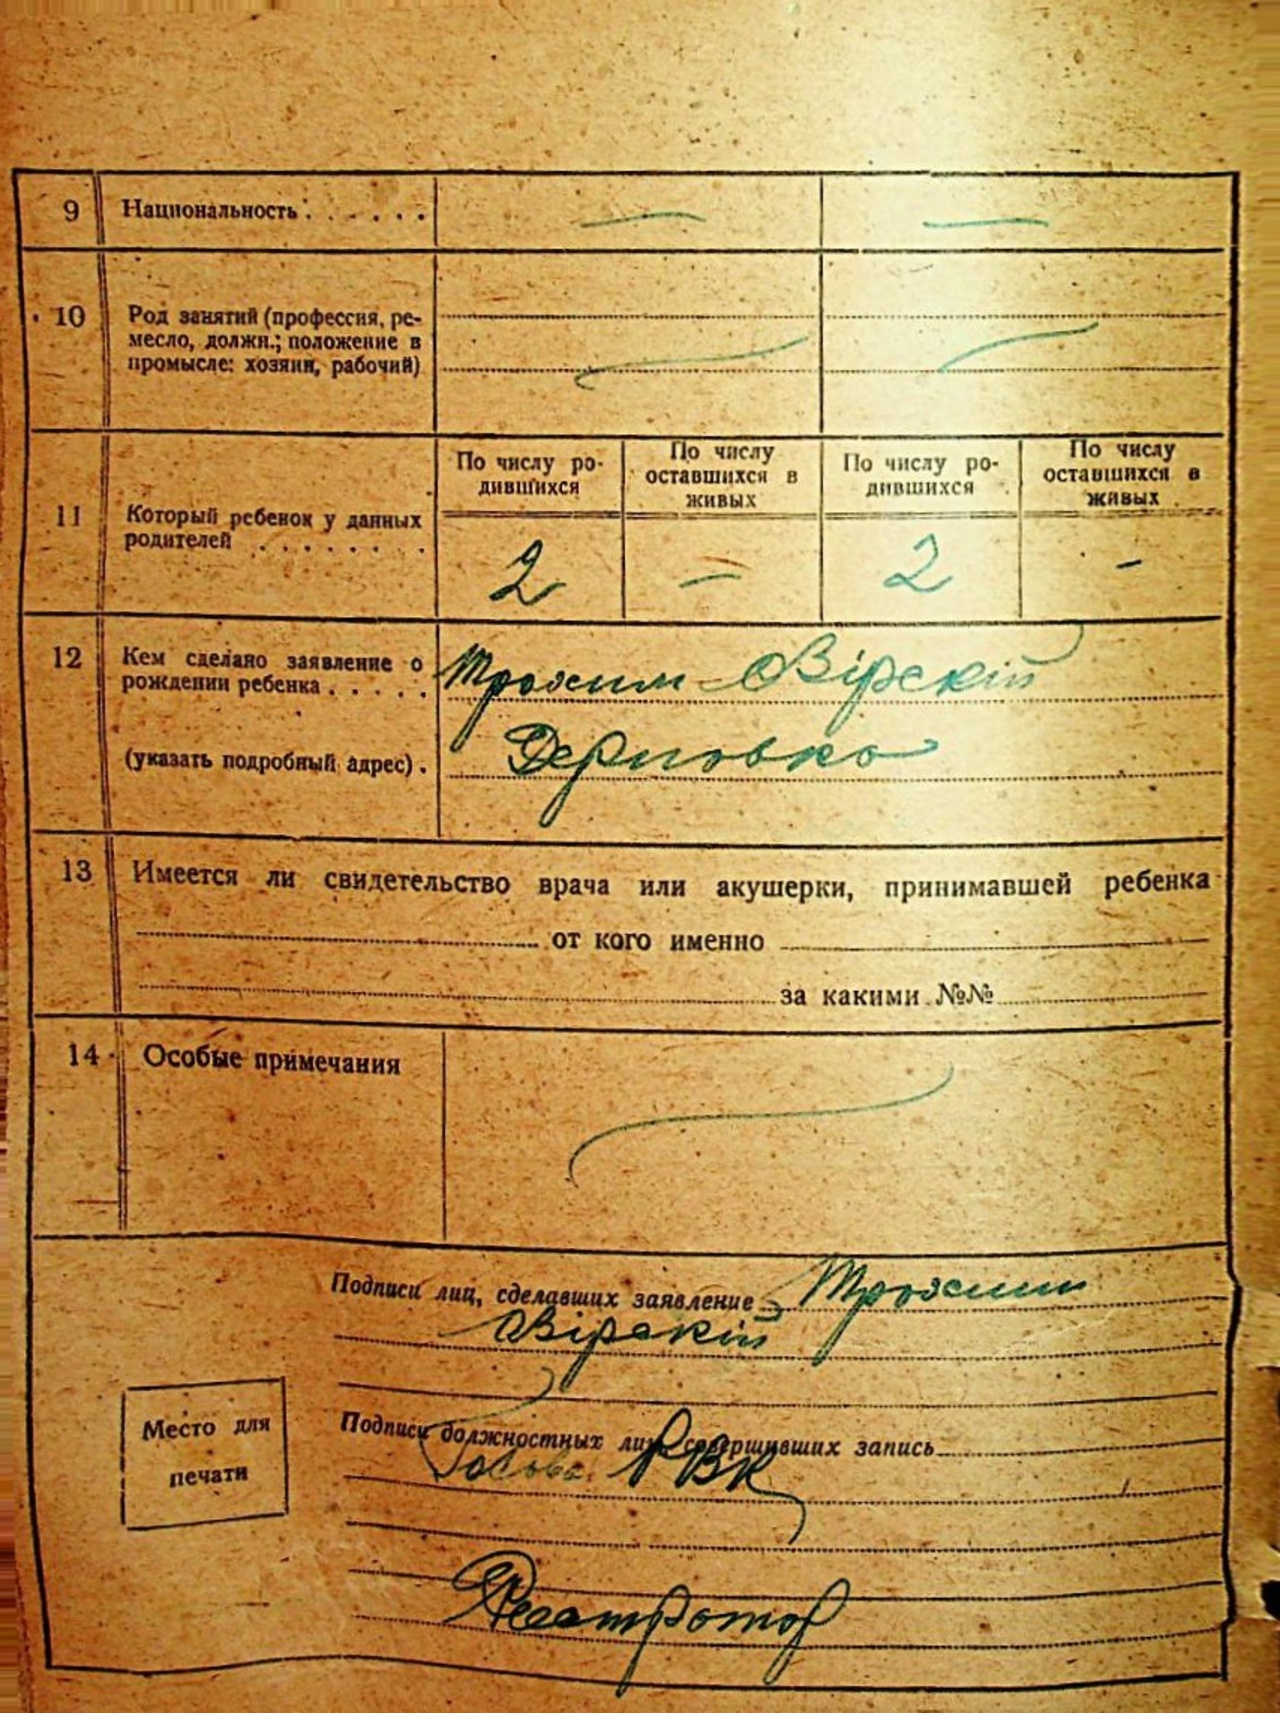 9 Национальность . . . . . . — —
10 Род занятий (профессия, ре-
месло, должн.; положение в
промысле: хозяин, рабочий)
По числу ро-
дившихся
По числу
оставшихся в
живых
По числу ро-
дившихся
По числу
оставшихся в
живых
11 Который ребенок у данных
родителей . . . . . . .
2 — 2 -
12 Кем сделано заявление о
рождении ребенка . . . . .
Трохим Вірскій
(указать подробный адрес) .
13 Имеется ли свидетельство врача или акушерки, принимавшей ребенка
от кого именно
за какими №№
14 Особые примечания
Подписи лиц, сделавших заявление Трохим
Вірскій
Подписи должностных лиц совершивших запись
Голова РВК
Место для
печати
Реєстратор